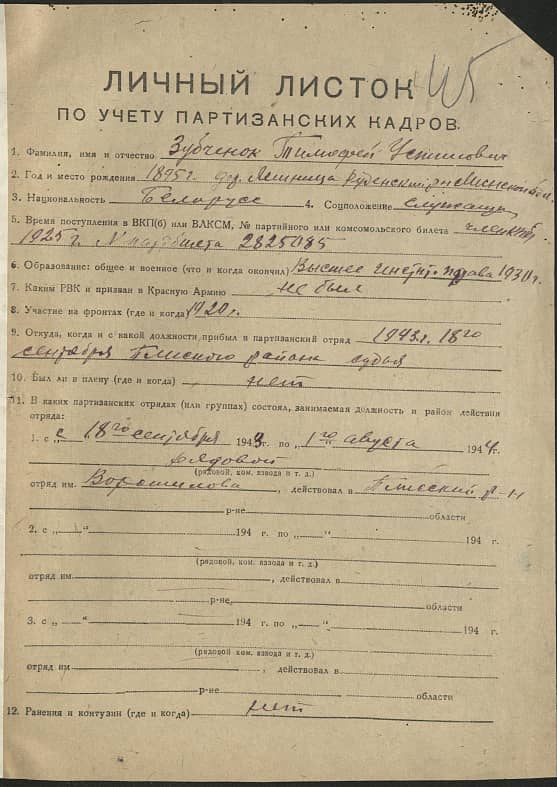 145
ЛИЧНЫЙ ЛИСТОК
ПО УЧЕТУ ПАРТИЗАНСКИХ КАДРОВ.
1. Фамилия, имя и отчество Зубченок Тимофей Устинович
2. Год и место рождения 1895 г. дер. Лешница Руденский р-н Минской обл.
3. Национальность Беларусс 4. Соцположение служащий
5. Время поступления в ВКП(б) или ВЛКСМ, № партийного или комсомольского билета член ВКП(б)
1925 г. № партбилета 2825085
6. Образование: общее и военное (что и когда окончил) Высшее Инстит. права 1930 г.
7. Каким РВК и призван в Красную Армию не был
8. Участие на фронтах (где и когда) 1920 г.
9. Откуда, когда и с какой должности прибыл в партизанский отряд 1943 г. 18го
сентября Плисского района судья
10. Был ли в плену (где и когда) нет
11. В каких партизанских отрядах (или группах) состоял, занимаемая должность и район действия
отряда:
1. с „18го сентября 1943 г. по „1го августа 1944 г.
рядовой
(рядовой, ком. взвода и т. д.)
отряд им. Ворошилова, действовал в Плисский р-н
р-не области
2. с „ “ 194 г. по „ “ 194 г.
(рядовой, ком. взвода и т. д.)
отряд им , действовал в
р-не, области
3. с „ “ 194 г. по „ “ 194 г.
(рядовой ком. взвода и т. д.)
отряд им , действовал в
р-не области
12. Ранения и контузии (где и когда) нет